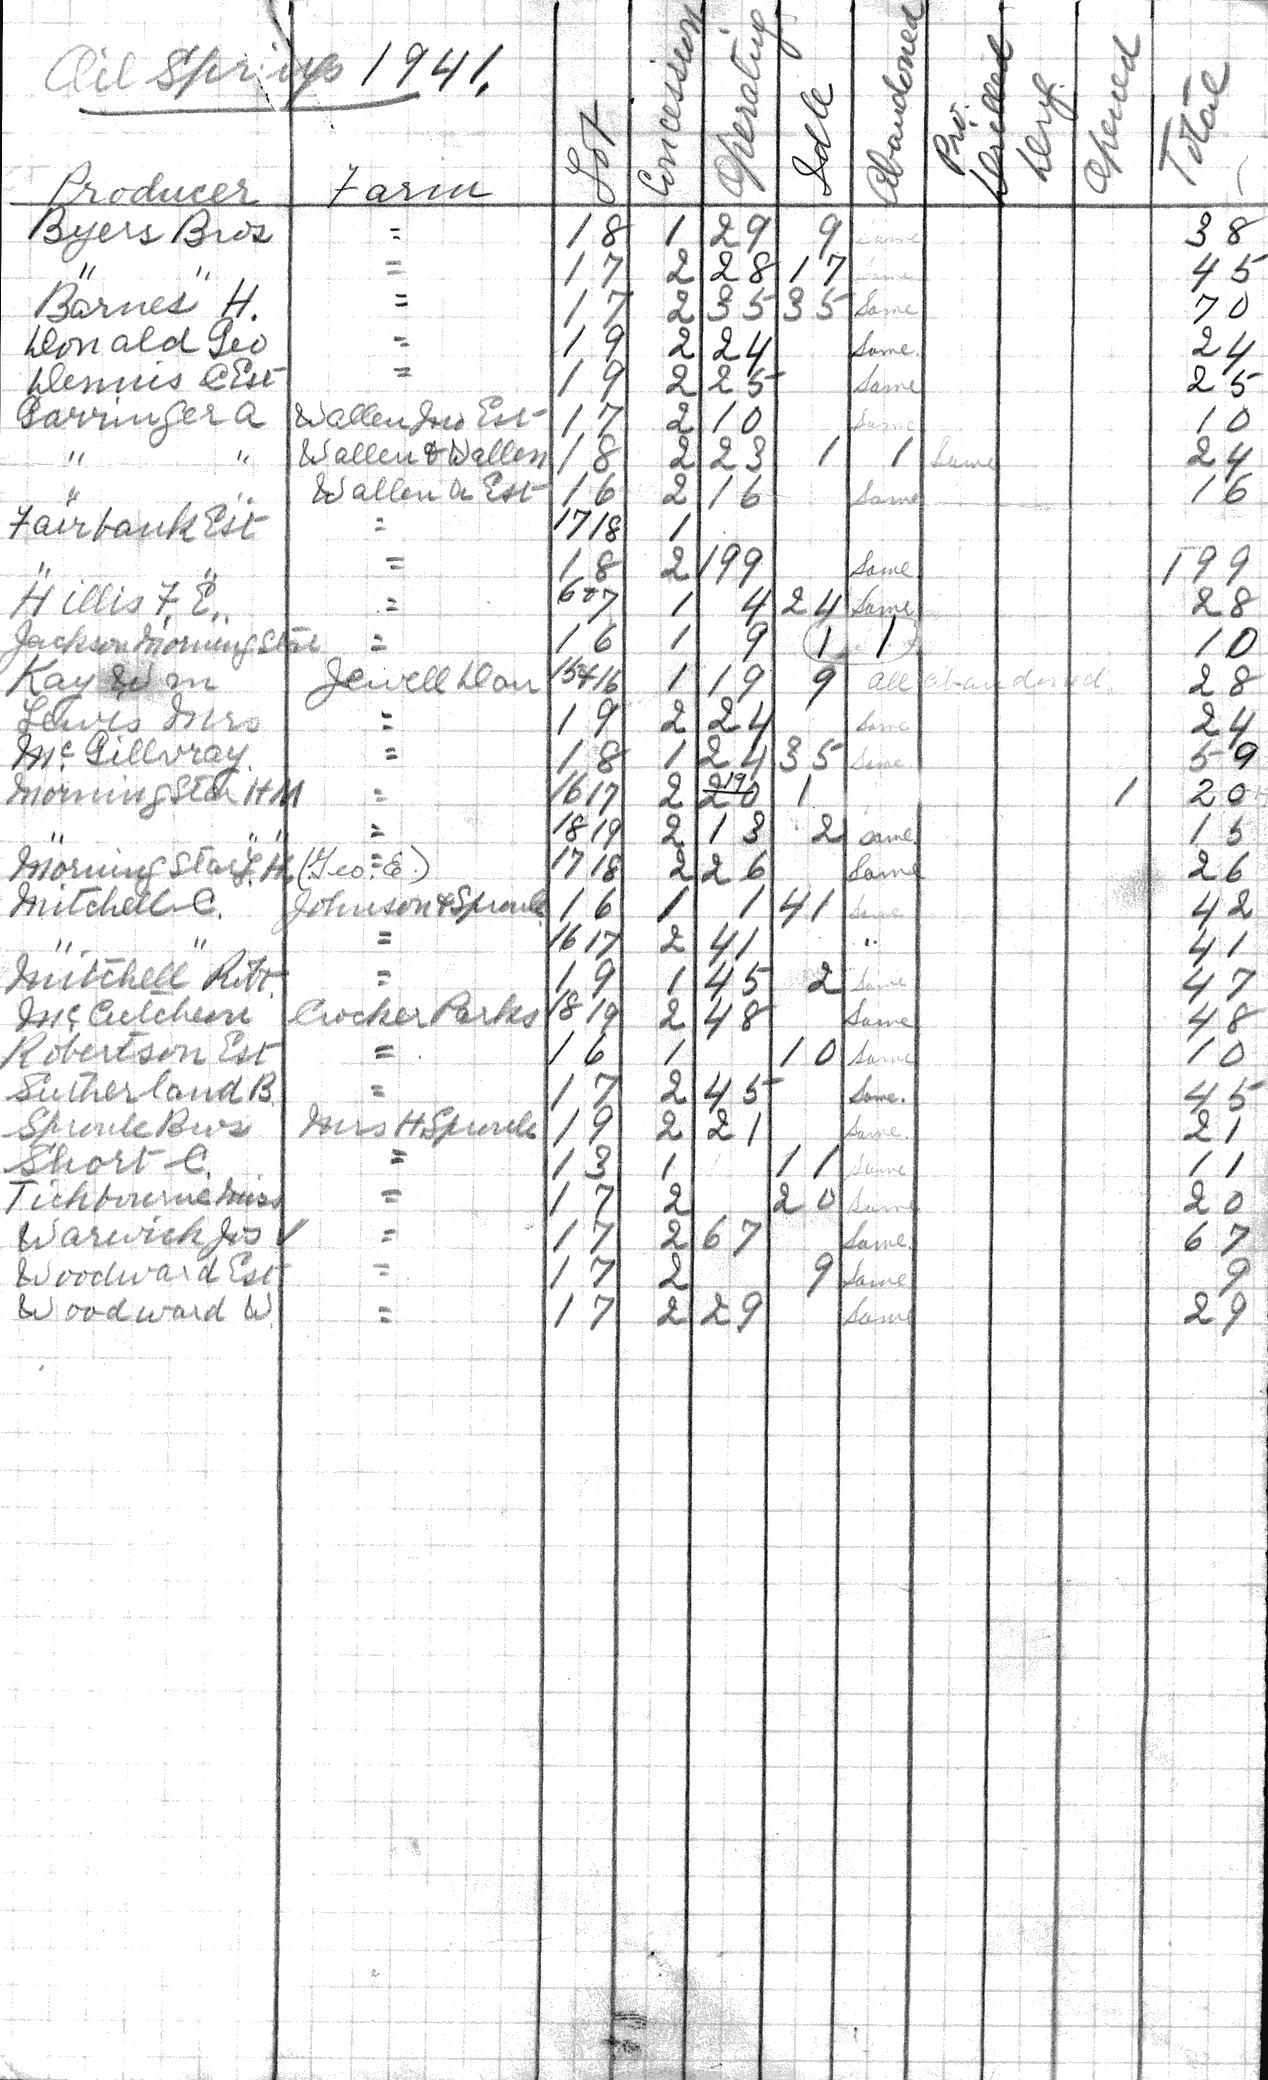 Oil Springs 1941.
Producer Farm Lot Concession Operating Idle Abandoned Pro. Drilled Deny. Opened Total
Byers Bros = 18 1 29 9 same 38
" " = 17 2 28 17 same 45
Barnes H. = 17 2 35 35 Same 70
Donald Geo = 19 2 24 Same. 24
Dennis C Est = 19 2 25 Same 25
Garringer A Wallen Jno Est 17 2 10 Same 10
" " Wallen & Wallen 18 2 23 1 1 Same 24
" " Wallen A Est 16 2 16 Same 16
Fairbank Est = 17 18 1
" " = 18 2 199 Same 199
Hillis F. E. = 6 & 7 1 4 24 Same 28
Jackson Morning Star = 16 1 9 1 1 10
Kay Wm Jewell Dan 15 & 16 1 19 9 all abandoned 28
Lewis Mrs = 19 2 24 Same 24
Mc Gillvray. = 18 1 24 35 Same 59
Morning Star H M = 16 17 2 20 19 1 1 20
" " = 18 19 2 13 2 same 15
Morning Star H. (Geo. E.) = 17 18 2 26 Same 26
Mitchell C. Johnson & Sproule 16 1 1 41 Same 42
" " = 16 17 2 41 " 41
Mitchell Robt. = 19 1 45 2 Same 47
Mc Cutcheon Crocker Parks 18 19 2 48 Same 48
Robertson Est = 16 1 10 Same 10
Sutherland B. = 17 2 45 Same. 45
Sproule Bros Mrs H. Sproule 19 2 21 Same. 21
Short C. = 13 1 11 Same 11
Tichbourne Miss = 17 2 20 Same 20
Warwick Jos ✓ = 17 2 67 Same. 67
Woodward Est = 17 2 9 Same 9
Woodward W. = 17 2 29 Same 29